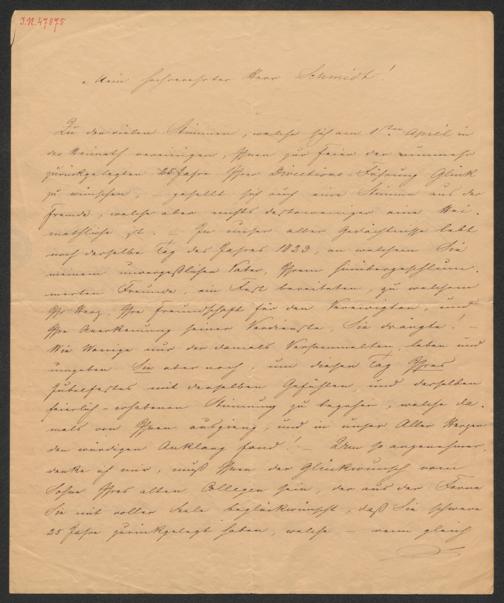 I.N. 47875
Mein hochverehrter Herr Schmidt!
Zu den vielen Stimmen, welche sich am 1ten April in
der Heimath vereinigen, Ihnen zur Feier der nunmehr
zurückgelegten 25 Jahre Ihrer Directions-Führung Glück
zu wünschen, – gesellt sich auch eine Stimme aus der
Fremde, welche aber nichts destoweniger eine Hei-
mathliche ist. – In unser aller Gedächtnisse lebt
noch derselbe Tag des Jahres 1823, an welchem Sie
meinem unvergeßlichen Vater, Ihrem hinübergeschlum-
merten Freunde, ein Fest bereiteten, zu welchem
Ihr Herz, Ihre Freundschaft für den Verewigten, und
Ihre Anerkennung seiner Verdienste, Sie drängte! –
Wie Wenige nur der damals Versammelten leben und
umgeben Sie aber noch, um diesen Tag Ihres
Jubelfestes mit denselben Gefühlen und derselben
feierlich-erhebenen Stimmung zu begehen, welche da-
mals von Ihnen ausgieng, und in unser Aller Herzen
den würdigen Anklang fand! – Um so angenehmer,
denke ich mir, muß Ihnen der Glückwunsch vom
Sohne Ihres alten Collegen sein, der aus der Ferne
Sie mit voller Seele beglückwünscht, daß Sie schwere
25 Jahre zurückgelegt haben, welche – wenn gleich